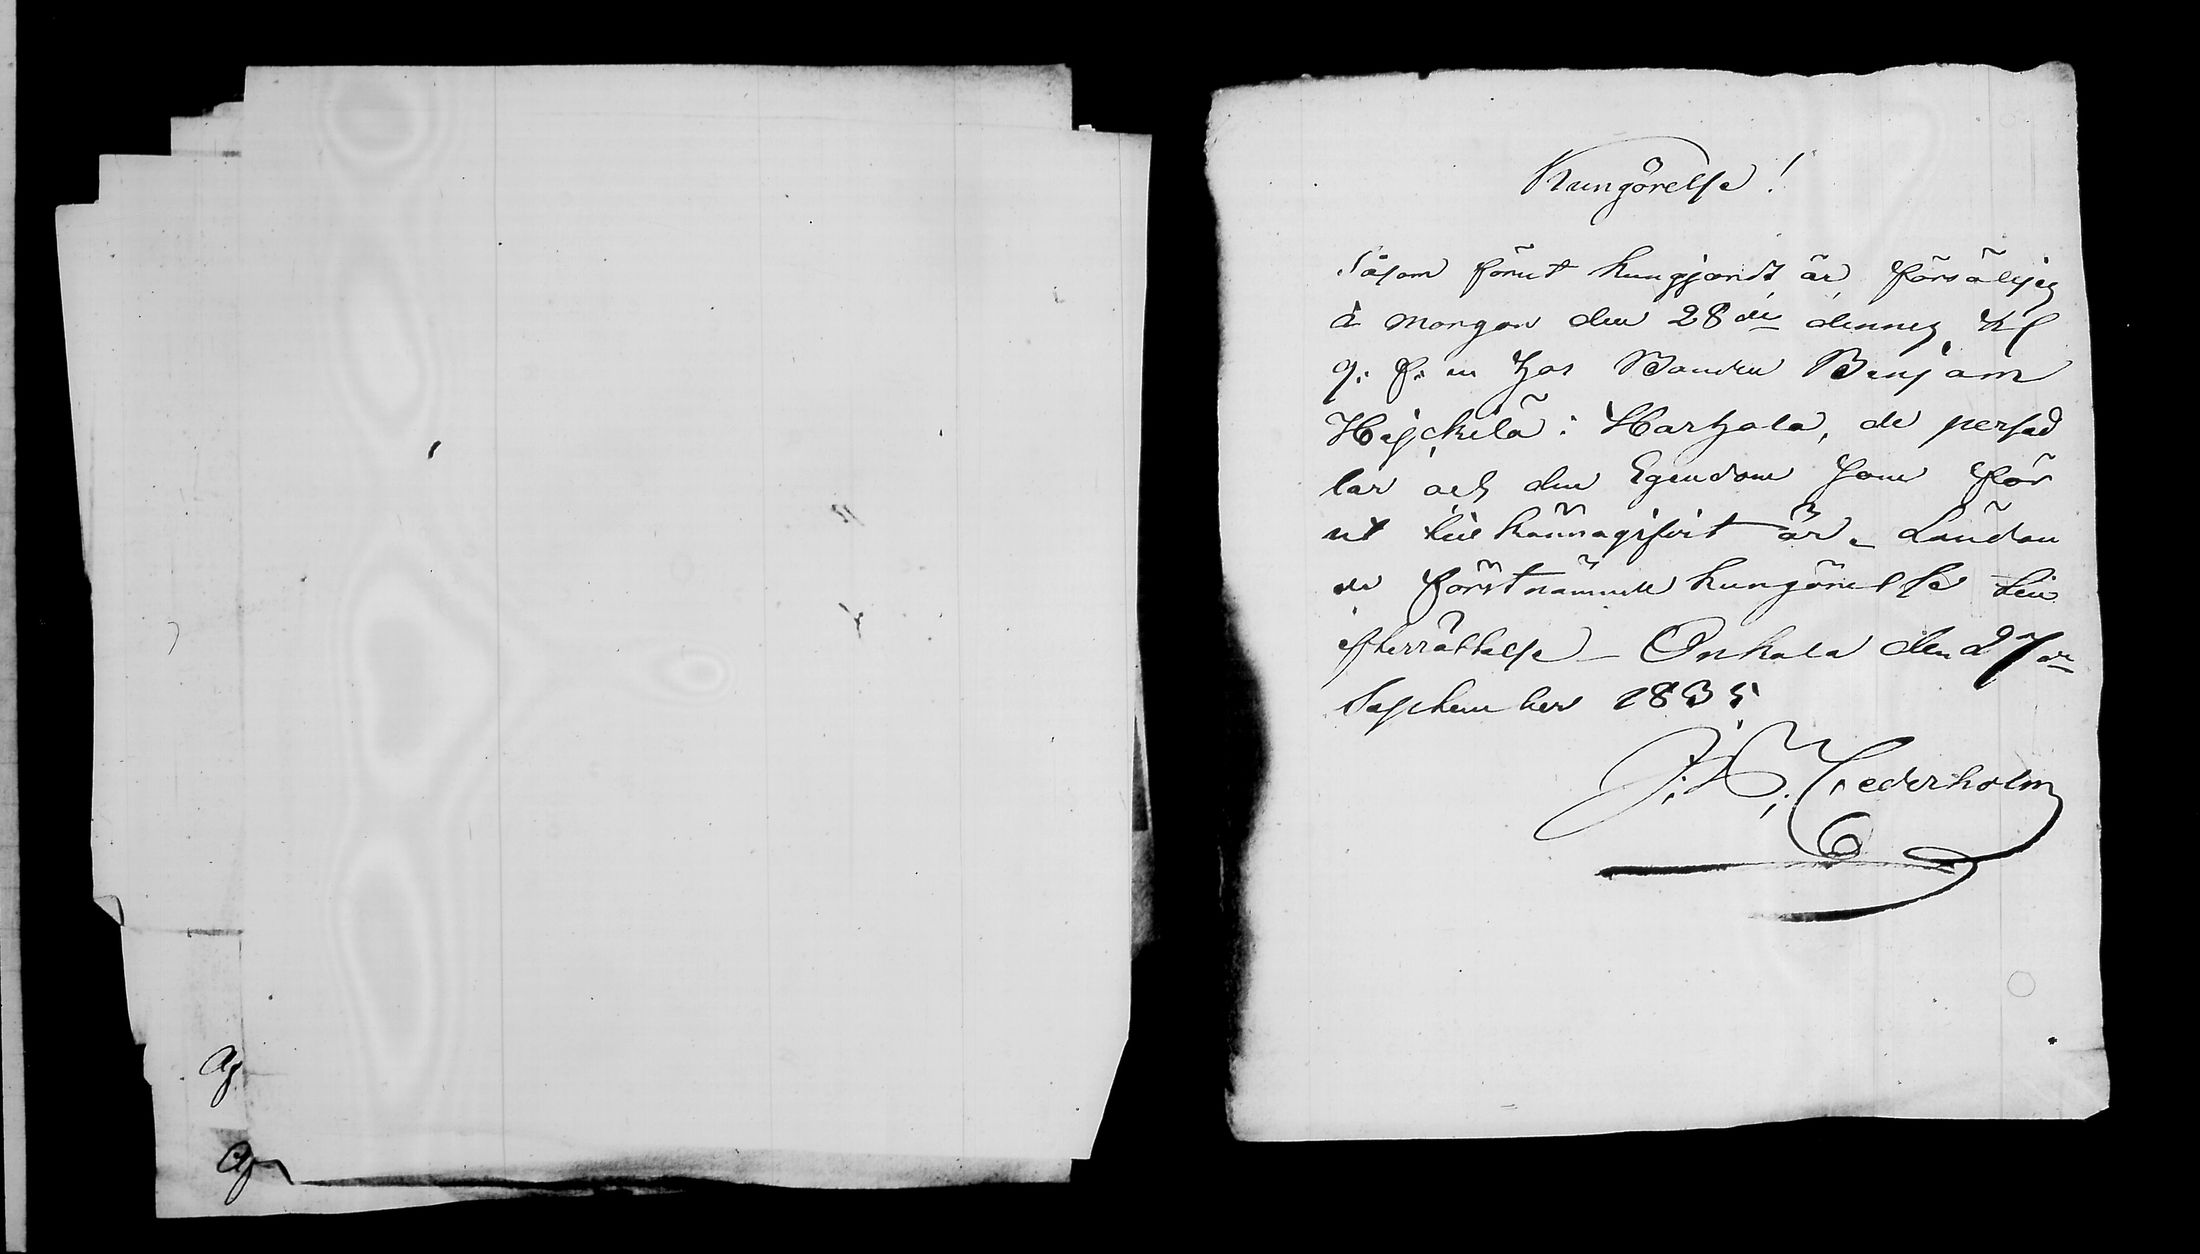 Kungörelse!
Såsom förut kungjordt är försäljes
à morgon den 28de dennes, Kl
9. f. m hos Bonden Benjam
Heickilä i Harhala, de persed
lar och den Egendom som för
ut tillkännagifvit är. Ländan
de förstnämnde kungörelse till
efterrättelse – Onkala den 27de
September 1835
J. A. Cederholm